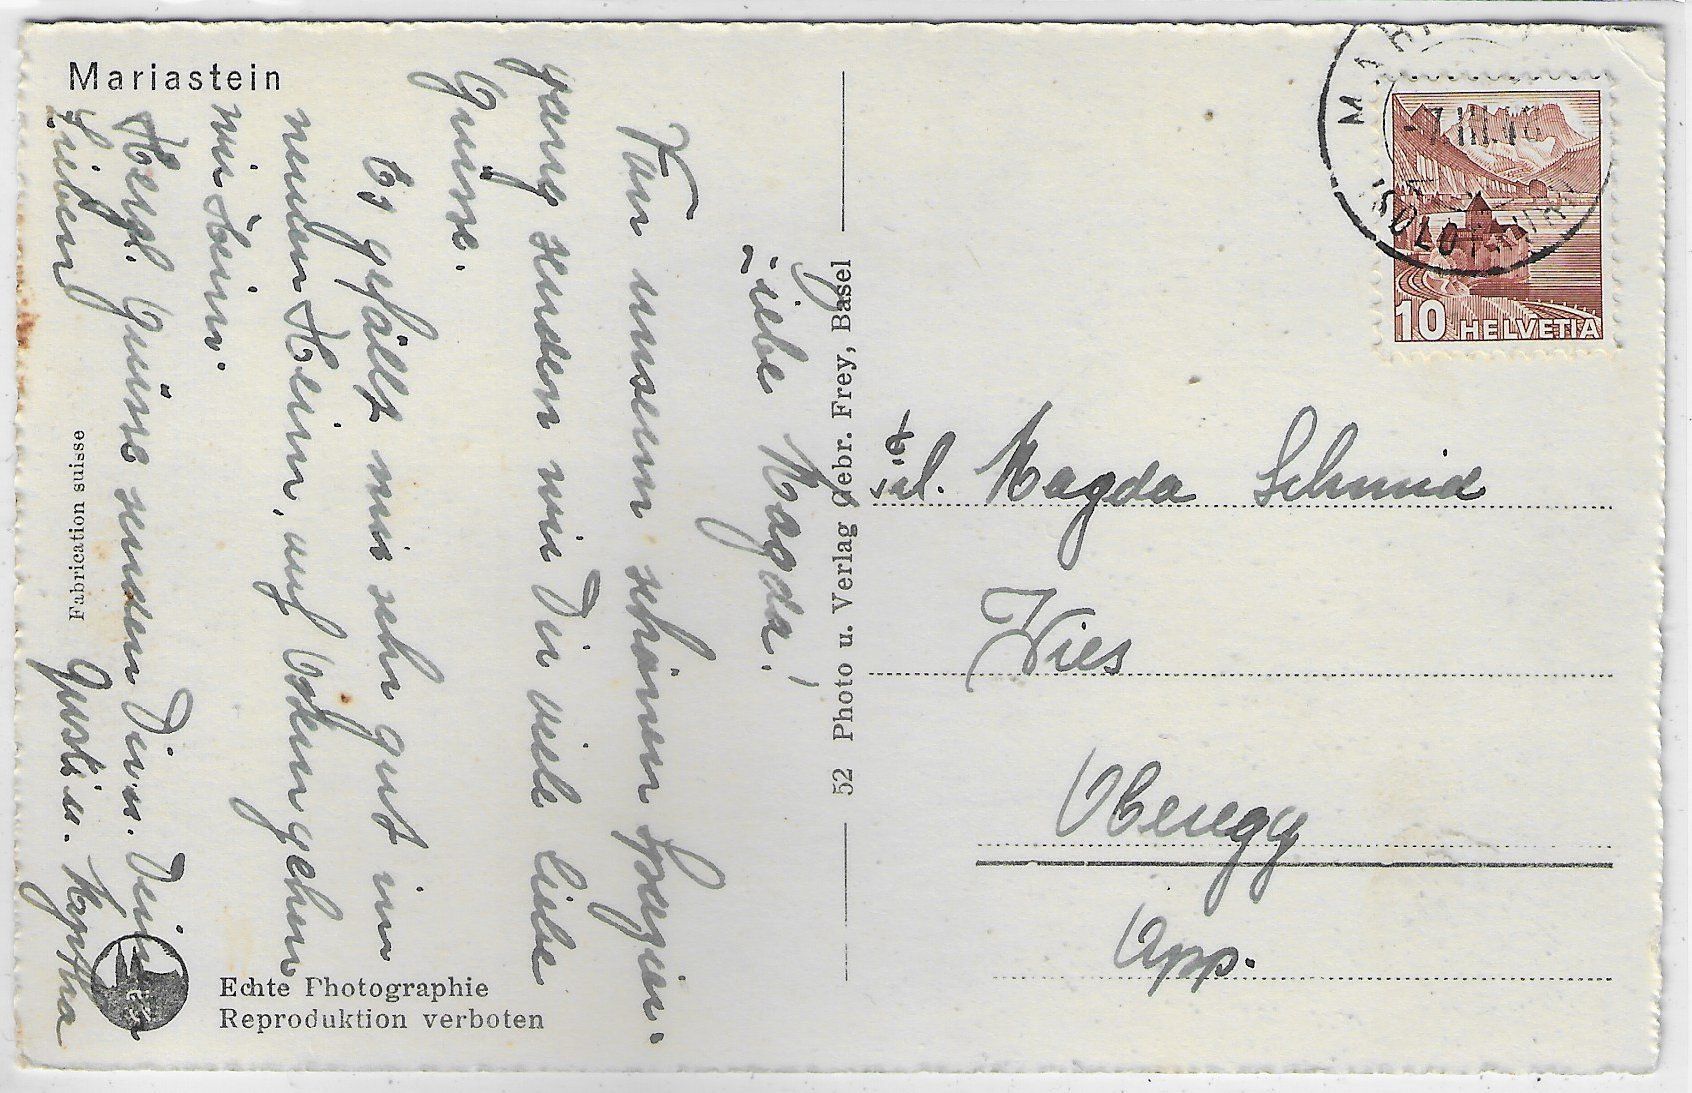 Mariastein
Liebe Magda!
Von unserem schönen Spazier-
gang senden wir Dir viele liebe
Grüsse.
Es gefällt mir sehr gut im
neuen Heim, auf Ostern gehen
wir heim.
Herzl. Grüsse senden Dir u. Deinen
Lieben Gusti u. Martha
Fabrication suisse
Echte Photographie
Reproduktion verboten
52 Photo u. Verlag Gebr. Frey, Basel
10 HELVETIA
(SOLOTHURN)
Frl. Magda Schmid
Wies
Oberegg
App.